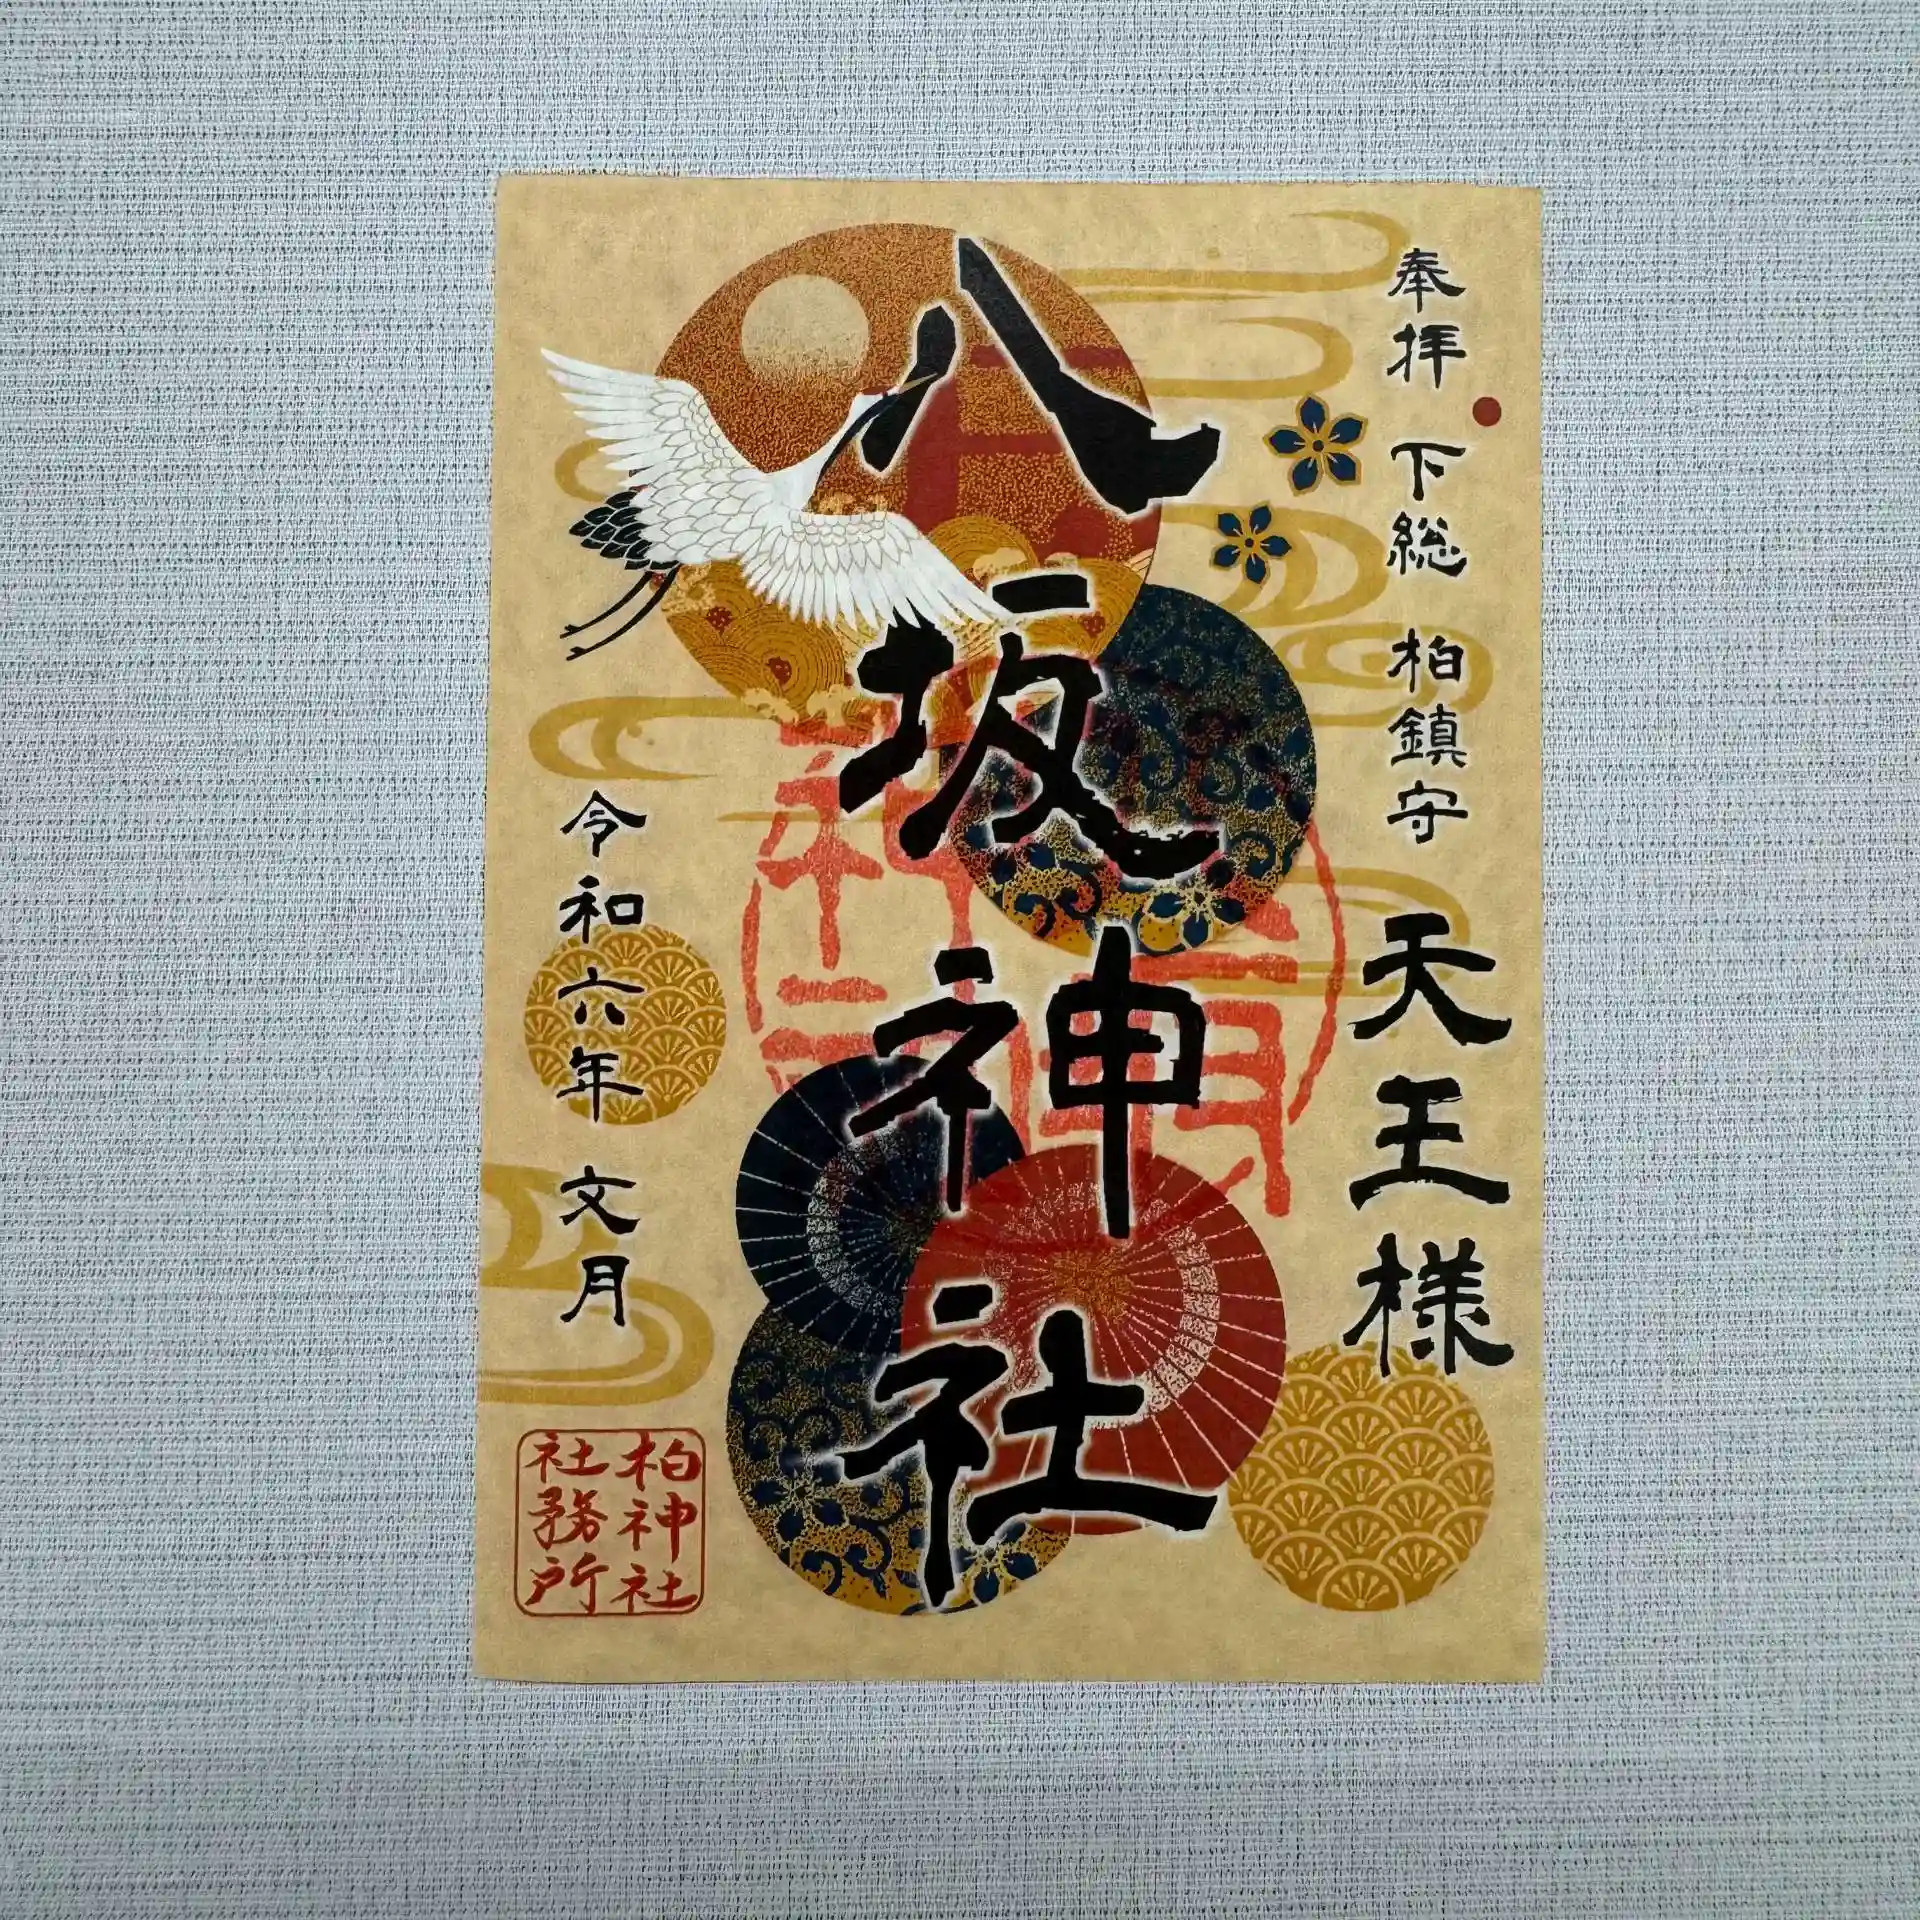 奉拝 下総 柏鎮守 天王様
八坂神社
令和六年 文月
柏神社
社務所